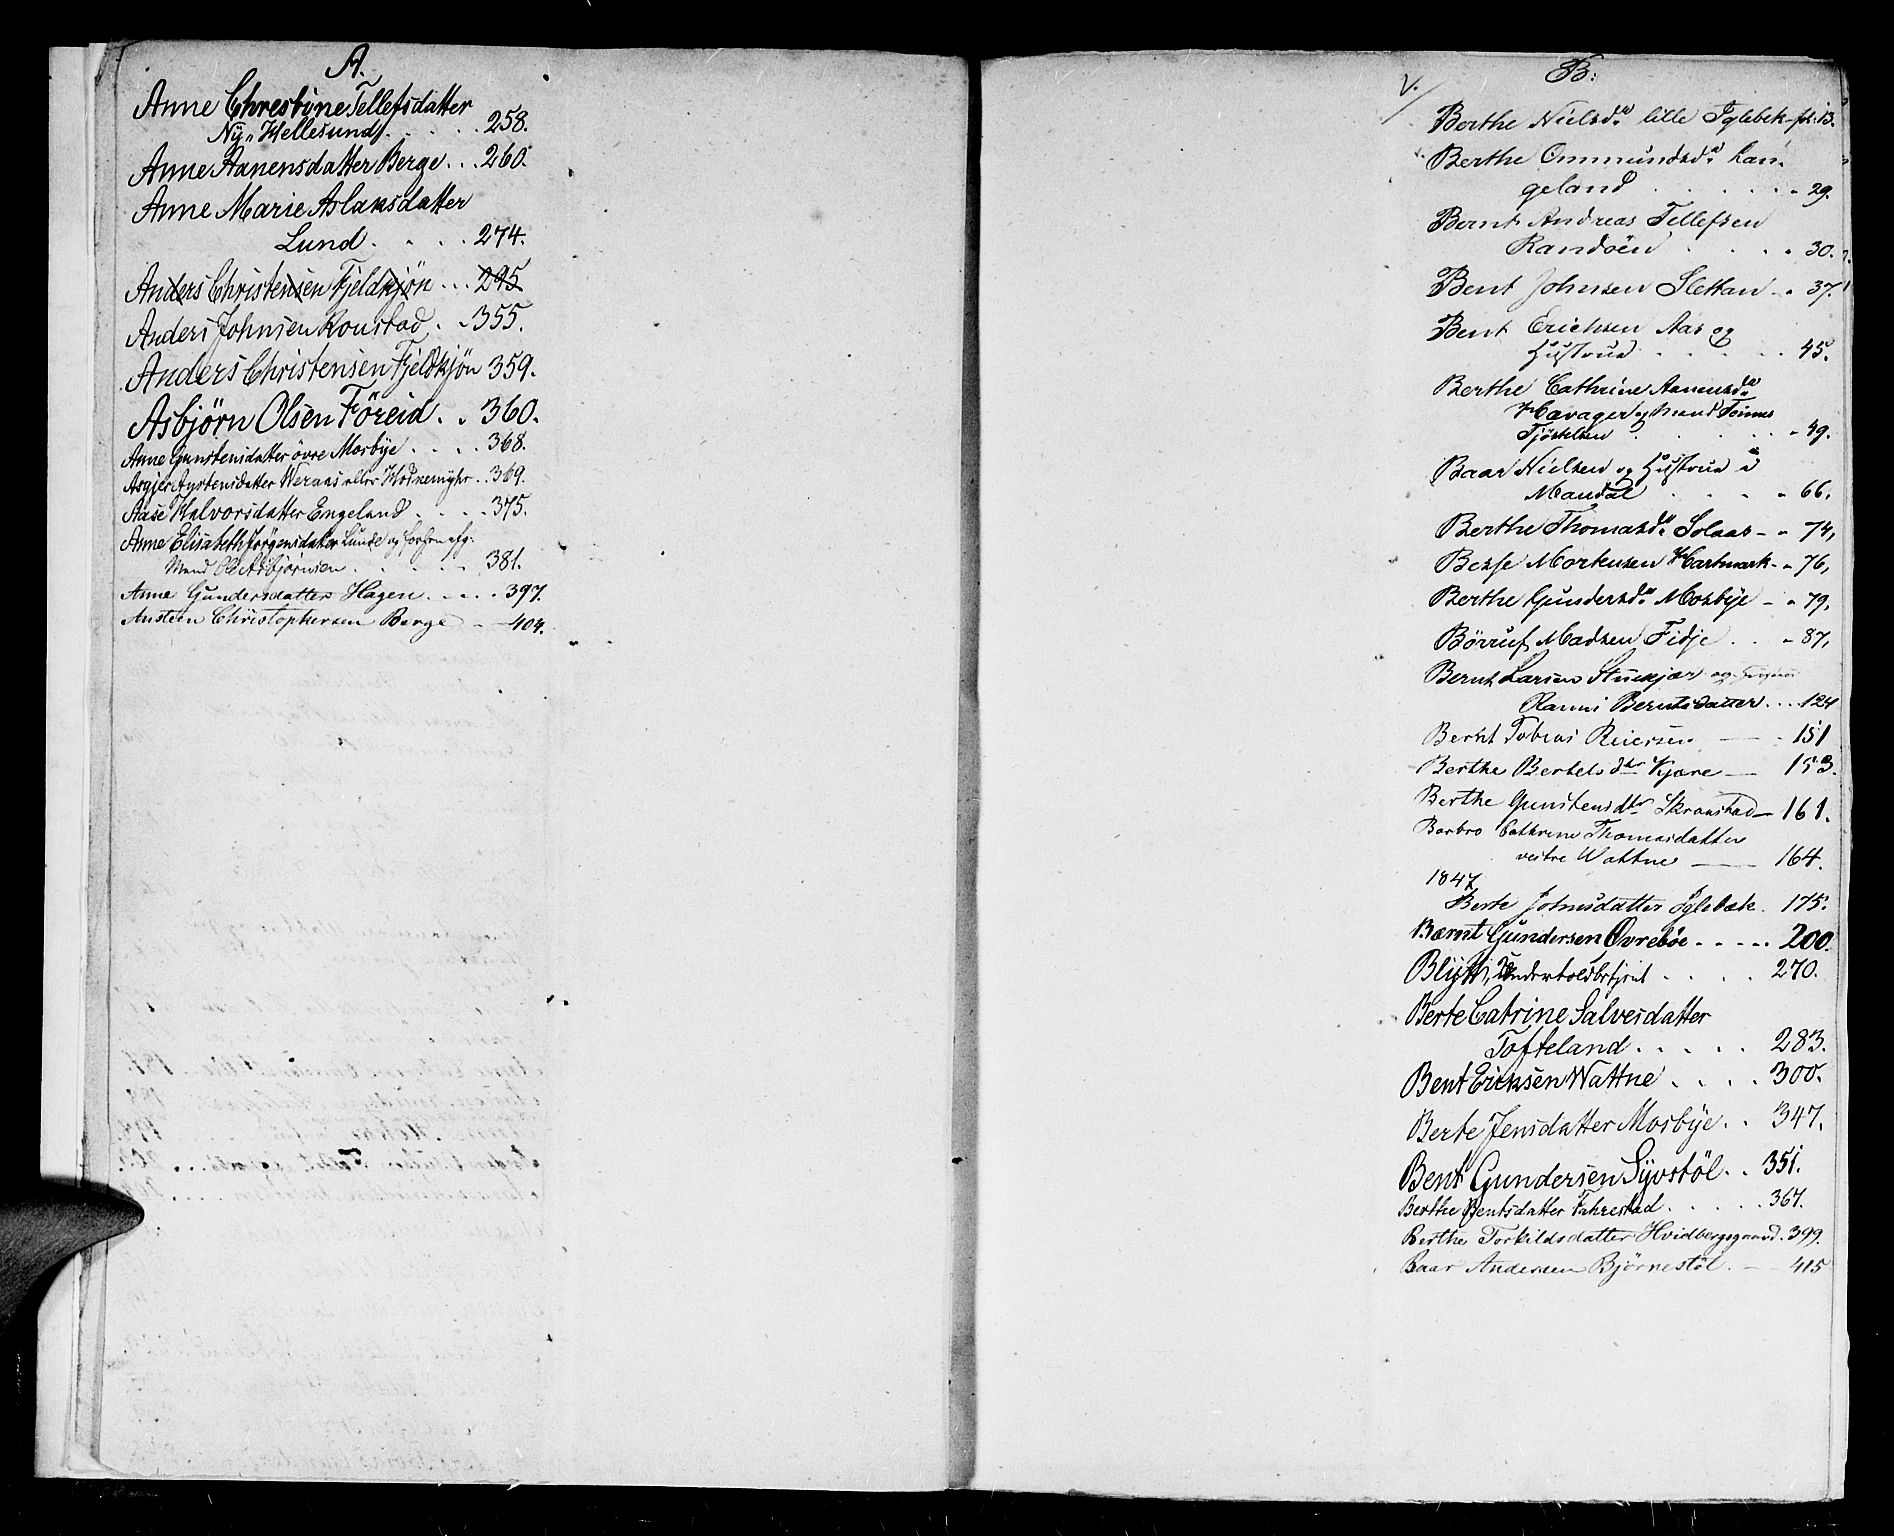 A.
Anne Chrestine Tellefsdatter
Ny Hellesund . . . . . 258.
Anne Aanensdatter Berge . . . 260.
Anne Marie Aslaksdatter
Lund . . . . 274.
Anders Christensen Fjeldkjön . . . 295
Anders Johnsen Ronstad . . 355.
Anders Christensen Fjeldkjön 359.
Asbjørn Olsen Föreid . . 360.
Anne Gunstensdatter övre Mosbÿe . . . . 368.
Asgjer Aystensdatter Weraas eller Hodnemÿhr . . 369.
Aase Halvorsdatter Engeland . . . . 375.
Anne Elisabeth Jörgensdatter Lunde og forhen afg.
Mand Ole Asbjörnsen . . . . . 381.
Anne Gundersdatter Hagen . . . . . 397.
Ansteen Christophersen Berge - - 404.
V.
B:
Berthe Nielsd: lille Iglebek - fol: 13.
Berthe Ommundsd: Lan-
geland . . . . . . 29.
Bernt Andreas Tellefsen
Randöen . . . . 30.
Bent Johnsen Slettan - . 37.
Bent Erichsen Aas og
Hustrue . . . . . 45.
Berthe Cathrine Aanensd:
Havager og Mand
Tjöstelsen . . . . . 49.
Baar Nielsen og Hustrue i
Mandal . . . . 66.
Berthe Thomasd: Solaas - . 74,
Besse Mortensen Hartmark - . 76,
Berthe Gundersd: Mosbÿe - . 79,
Börruf Madsen Fidje . . . 87,
Bernt Larsen Stuekjær og
Ranni Berntsdatter . . . 124
Bernt Tobias Reiersen — . 151
Berthe Bertelsdtr Kjære — 153.
Berthe Gunstensdtr Skraustad — 161.
Barbro Cathrine Thomasdatter
vestre Wattne — 164.
1847
Berte Johnsdatter Iglebæk . 175.
Bærnt Gundersen Øvrebøe . . . . . 200.
Blijth, Underholdsbetjent . . . . 270.
Berte Catrine Salvesdatter
Tofteland . . . . . 283.
Bent Ericksen Wattne . . . . 300.
Berte Jensdatter Mosbÿe . . 347.
Bent Gundersen Sÿvstöl . . 351.
Berthe Bentsdatter Fahrestad . . . . . . 367.
Berthe Torkildsdatter Hvidbergsgaard . 399.
Baar Andersen Bjørnestöl . — 415